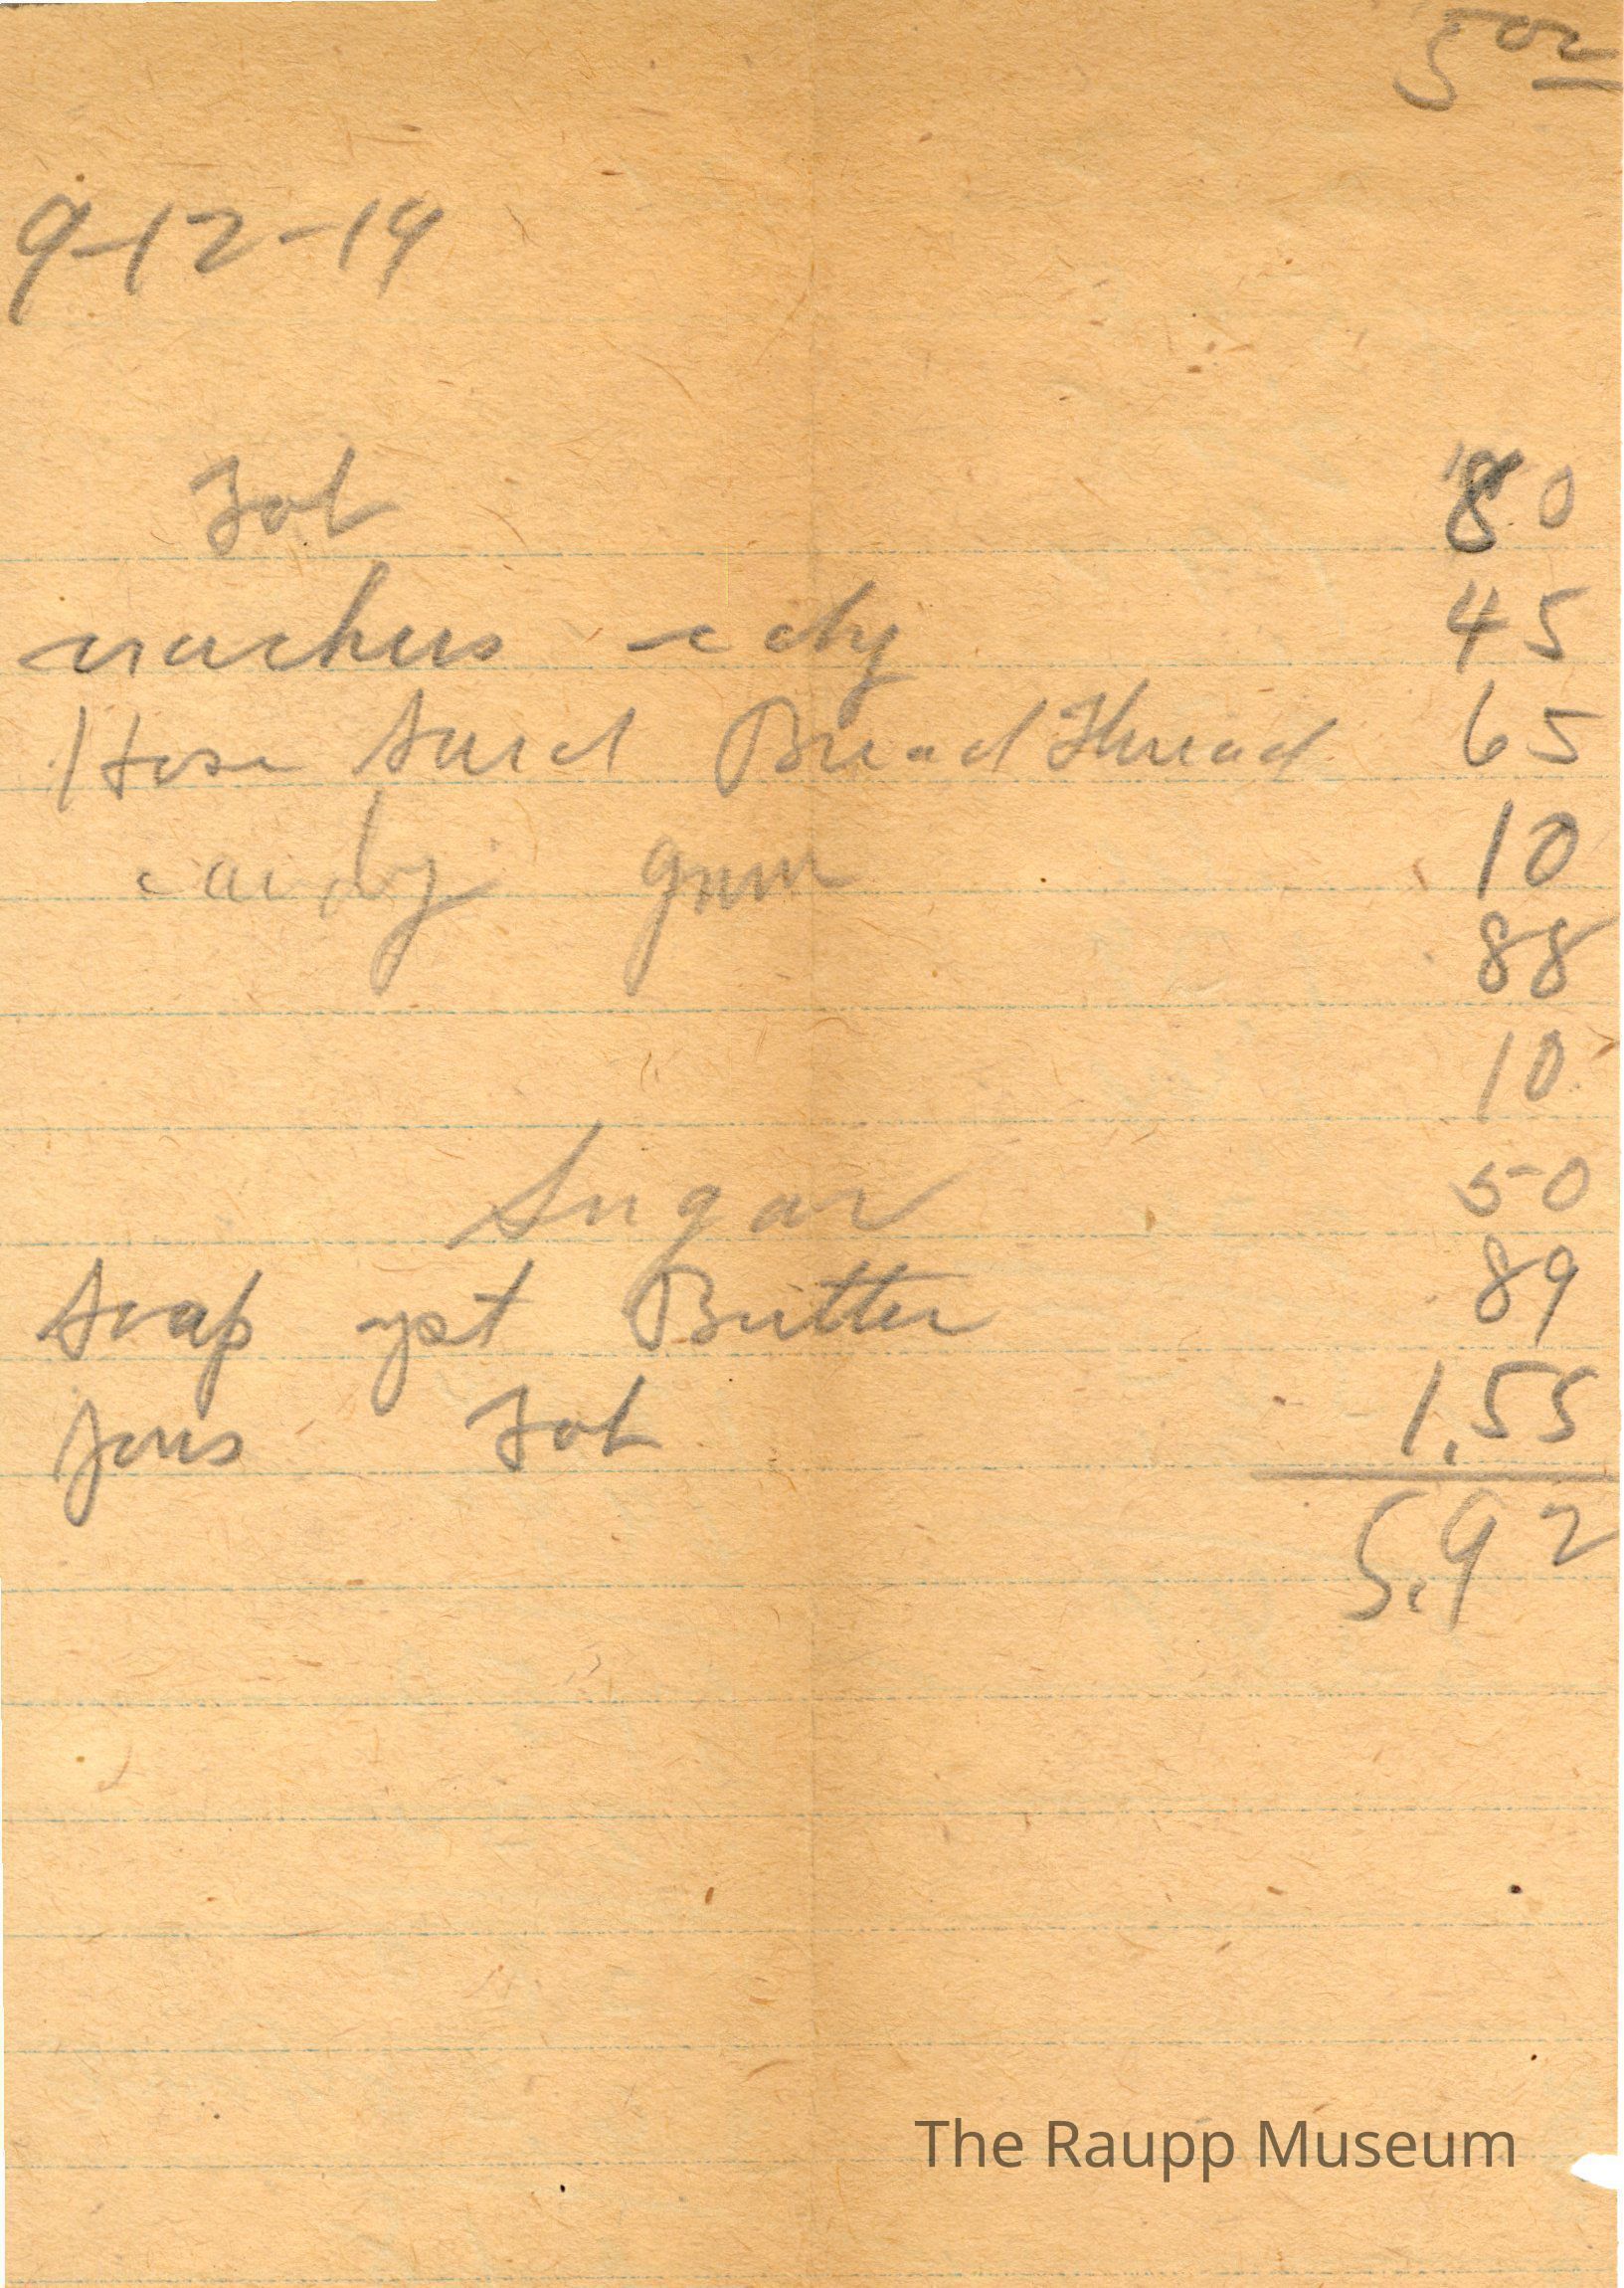 5 00
9-12-19
Tob 80
crackers cdy 45
Hose Sard Bread Thread 65
candy gum 10
88
10
Sugar 50
Soap yst Butter 89
Tob 1.55
5.92
The Raupp Museum